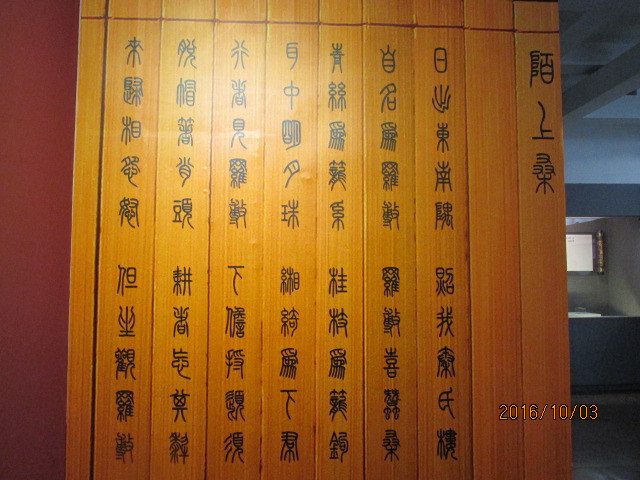 陌上桑
日出東南隅 照我秦氏樓
自名為羅敷 羅敷喜蠶桑
青絲為籠系 桂枝為籠鉤
耳中明月珠 緗綺為下帬
行者見羅敷 下儋捋頾須
脫帽著帩頭 耕者忘其犂
來歸相怨怒 但坐觀羅敷
2016/10/03